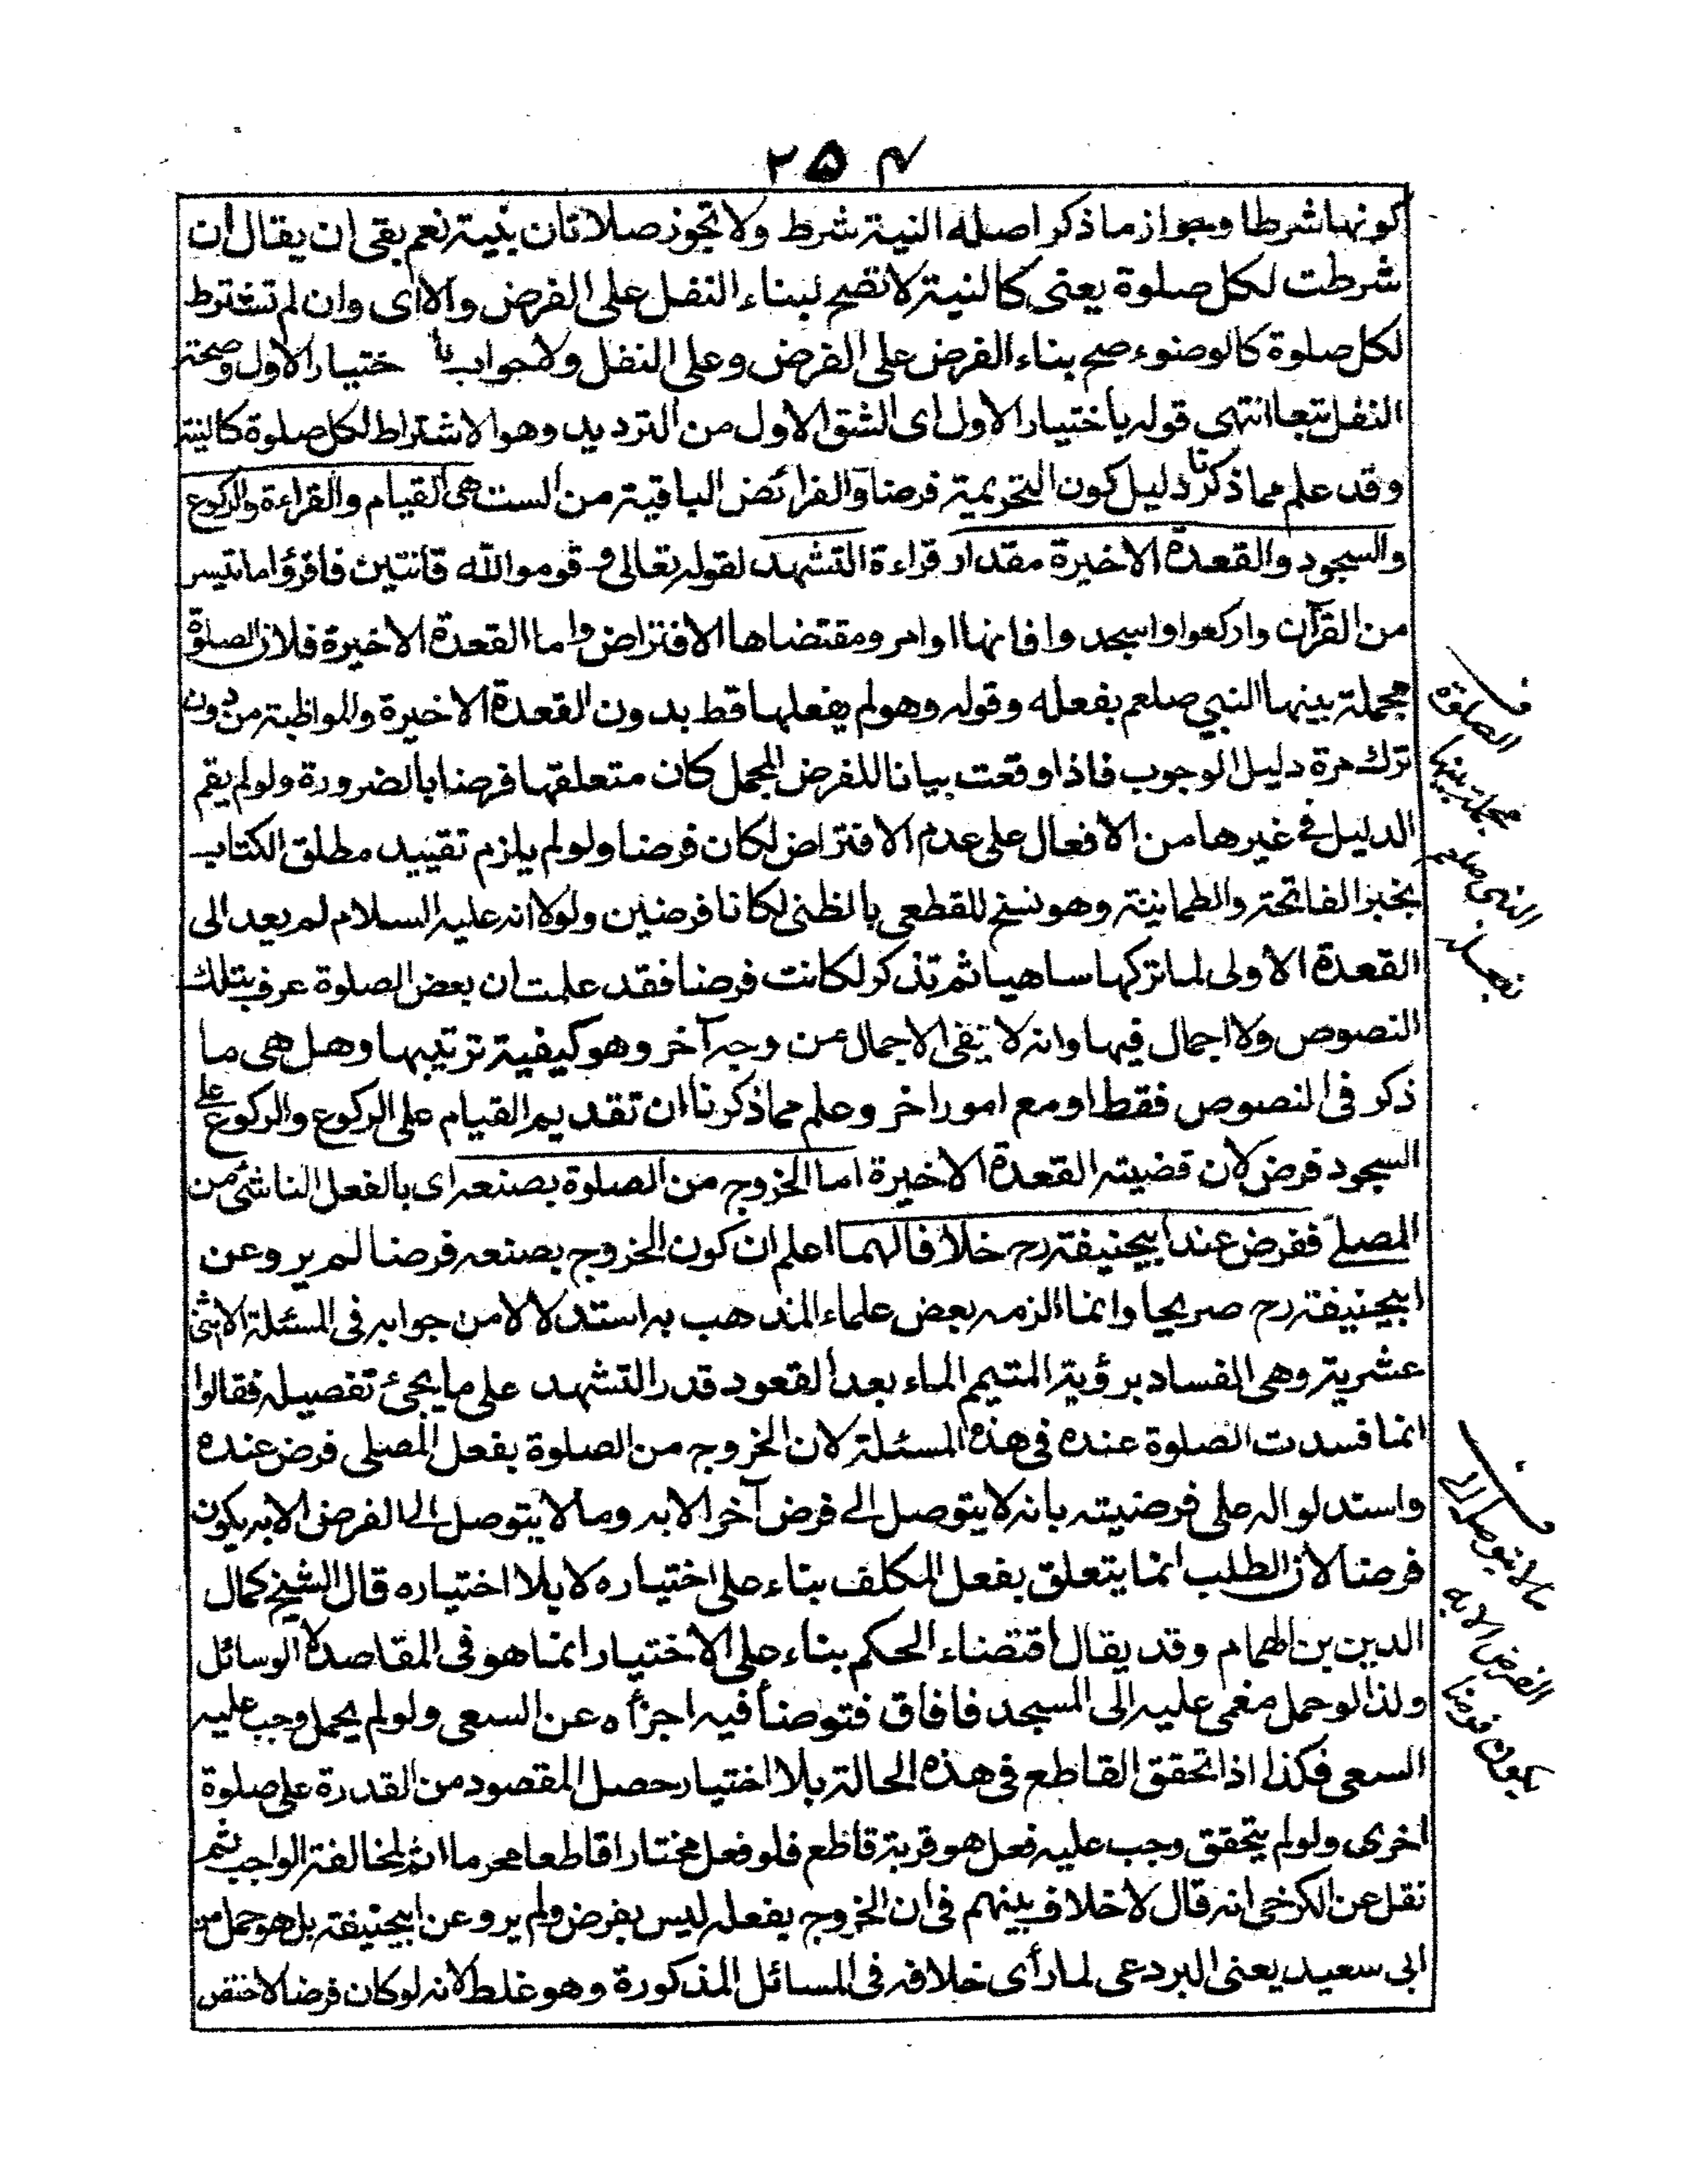 ٢٥٤
كونها شرطا وجواز ما ذكر اصله النية شرط ولا تجوز صلاتان بنية نعم بقى ان يقال ان
شرطت لكل صلوة يعنى كالنية لا تصح لبناء النفل على الفرض والا اى وان لم تشترط
لكل صلوة كالوضوء صح بناء الفرض على الفرض وعلى النفل ولا جواب با ختيار الاول وصحة
النفل تبعا انتهى قوله باختيار الاول اى الشق الاول من الترديد وهو الاشتراط لكل صلوة كالنية
وقد علم مما ذكرنا دليل كون التحريمة فرضا والفرائض الباقية من الست هى القيام والقراءة والركوع
والسجود والقعدة الاخيرة مقدار قراءة التشهد لقوله تعالى وقوموا لله قانتين فاقرؤا ما تيسر
من القرآن واركعوا واسجدوا فانها اوامر ومقتضاها الافتراض واما القعدة الاخيرة فلان الصلوة
مجملة بينها النبي صلعم بفعله وقوله وهو لم يفعلها قط بدون القعدة الاخيرة والمواظبة من دون
ترك مرة دليل الوجوب فاذا وقعت بيانا للفرض المجمل كان متعلقها فرضا بالضرورة ولو لم يقم
الدليل فى غيرها من الافعال على عدم الافتراض لكان فرضا ولو لم يلزم تقييد مطلق الكتاب
بخبر الفاتحة والطمانينة وهو نسخ للقطعى بالظنى لكانا فرضين ولولا انه عليه السلام لم يعد الى
القعدة الاولى لما تركها ساهيا ثم تذكر لكانت فرضا فقد علمت ان بعض الصلوة عرف بتلك
النصوص ولا اجمال فيها وانه لا ينفى الاجمال من وجه آخر وهو كيفية ترتيبها وهل هى ما
ذكر فى النصوص فقط او مع امور اخر وعلم مما ذكرنا ان تقديم القيام على الركوع والركوع على
السجود فرض لان قضيته القعدة الاخيرة اما الخروج من الصلوة بصنعه اى بالفعل الناشئ من
المصلى ففرض عند ابيحنيفة رح خلافا لهما اعلم ان كون الخروج بصنعه فرضا لم يرو عن
ابيحنيفة رح صريحا وانما الزمه بعض علماء المذهب به استدلالا من جوابه فى المسئلة الاثنى
عشرية وهى الفساد برؤية المتيمم الماء بعد القعود قدر التشهد على ما يجئ تفصيله فقالوا
انما فسدت الصلوة عنده فى هذه المسئلة لان الخروج من الصلوة بفعل المصلى فرض عنده
واستدلوا له على فرضيته بانه لا يتوصل الى فرض آخر الا به وما لا يتوصل الى الفرض الا به يكون
فرضا لان الطلب انما يتعلق بفعل المكلف بناء على اختياره لا بلا اختياره قال الشيخ كمال
الدين بن الهمام وقد يقال اقتضاء الحكم بناء على الاختيار انما هو فى المقاصد لا الوسائل
ولذا لو حمل مغمى عليه الى المسجد فافاق فتوضأ فيه اجزأه عن السعى ولو لم يحمل وجب عليه
السعى فكذا اذا تحقق القاطع فى هذه الحالة بلا اختيار حصل المقصود من القدرة على صلوة
اخرى ولو لم يتحقق وجب عليه فعل هو قربة قاطع فلو فعل مختارا قاطعا محرما اثم لمخالفة الواجب ثم
نقل عن الكرخى انه قال لا خلاف بينهم فى ان الخروج بفعله ليس بفرض ولم يرو عن ابيحنيفة بل هو حمل من
ابى سعيد يعنى البردعى لما رأى خلافه فى المسائل المذكورة وهو غلط لانه لو كان فرضا لاختص
الصلوة
مجملة بينها
النبى صلعم
بفعله
ما لا يتوصل الى
الفرض الا به
يكون فرضا